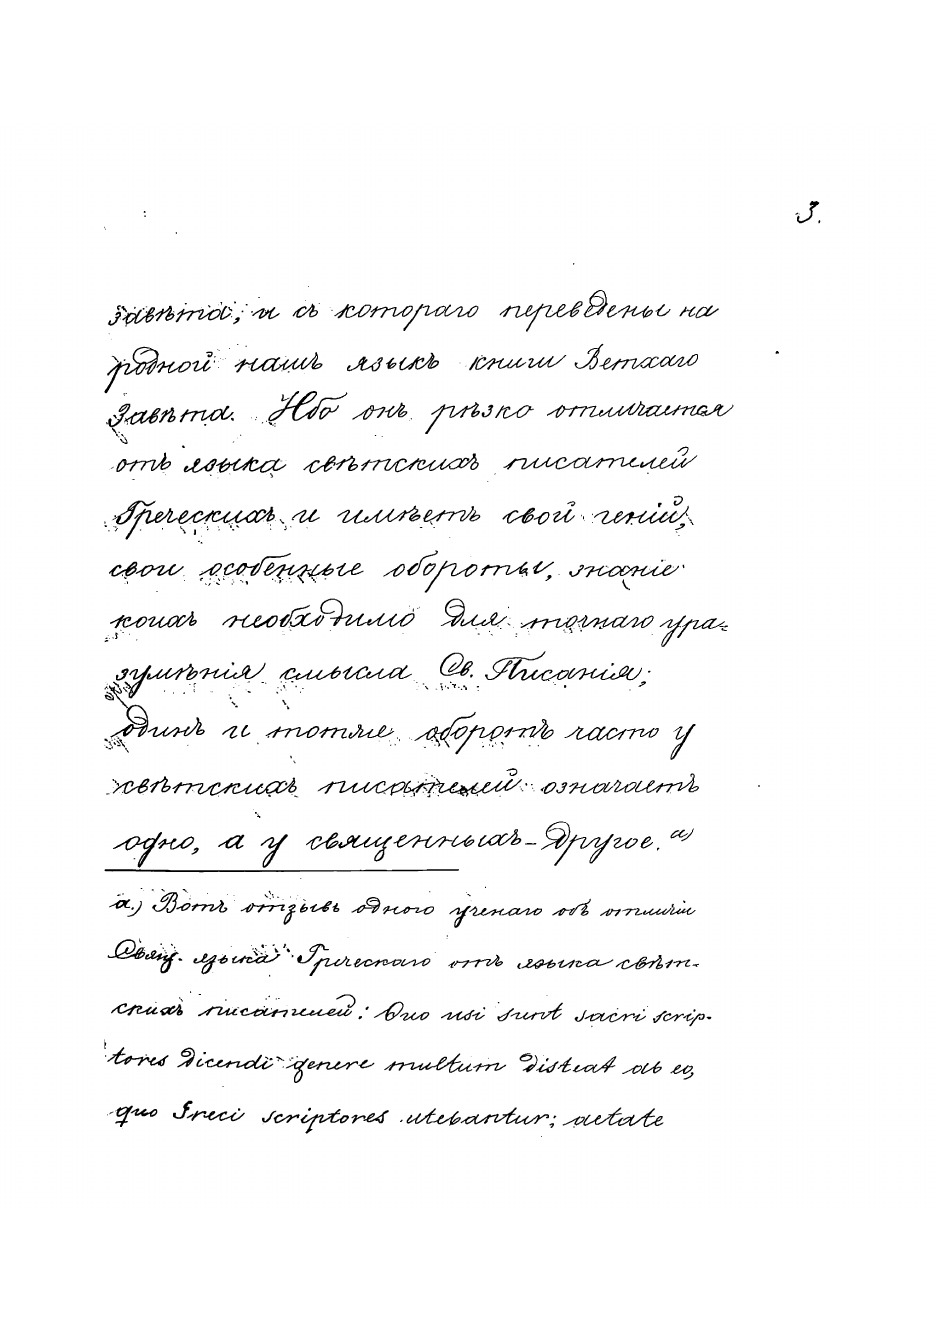 3.
завѣта; и съ котораго переведены на
родной нашъ языкъ книги Ветхаго
Завѣта. Ибо онъ рѣзко отличается
отъ языка свѣтскихъ писателей
Греческихъ и имѣетъ свой геній,
свои особенные обороты, знаніе
коихъ необходимо для точнаго ура=
зумѣнія смысла Св. Писанія;
одинъ и тотже оборотъ часто у
свѣтскихъ писателей означаетъ
одно, а у священныхъ - другое. а)
а.) Вотъ отзывъ одного ученаго объ отличіи
Свящ. языка Греческаго отъ языка свѣт-
скихъ писателей: Quo usi sunt sacri scrip-
tores dicendi genere multum disteat ab eo,
quo Greci scriptores utebantur; aetate